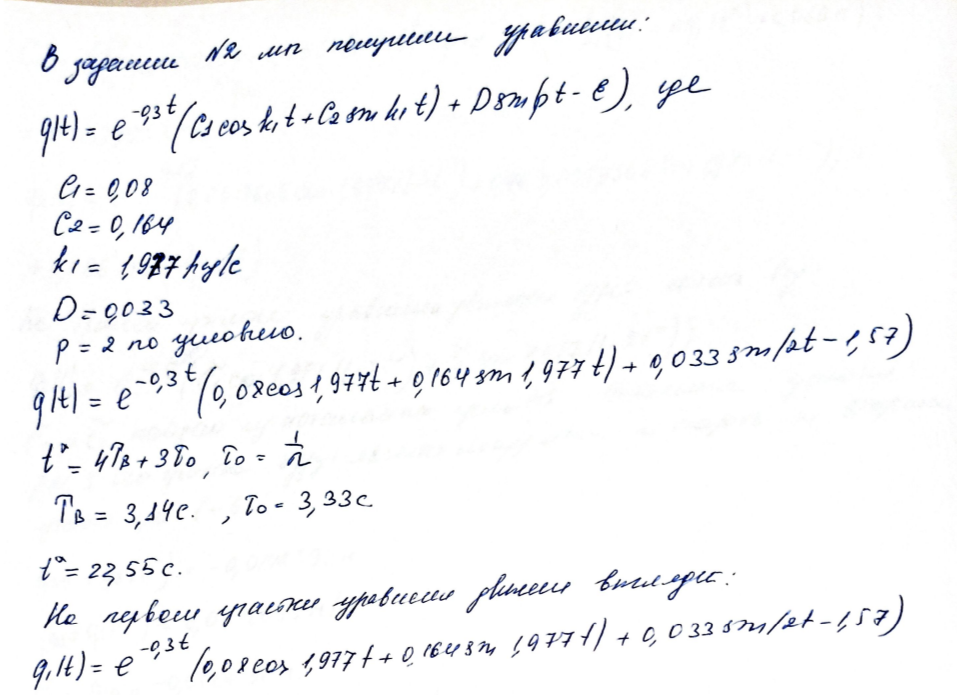 В задании №2 мы получили уравнение:
q(t) = e^{-0,3t} (C1 cos k1t + C2 sin k1t) + D sin(pt - ε), где
C1 = 0,08
C2 = 0,164
k1 = 1,977 рад/с
D = 0,033
p = 2 по условию.
q(t) = e^{-0,3t} (0,08 cos 1,977t + 0,164 sin 1,977t) + 0,033 sin(2t - 1,57)
t* = 4Tв + 3τ0, τ0 = 1/n
Tв = 3,14с. , τ0 = 3,33с
t* = 22,55с.
На первом участке уравнение движения выглядит:
q1(t) = e^{-0,3t} (0,08 cos 1,977t + 0,164 sin 1,977t) + 0,033 sin(2t - 1,57)